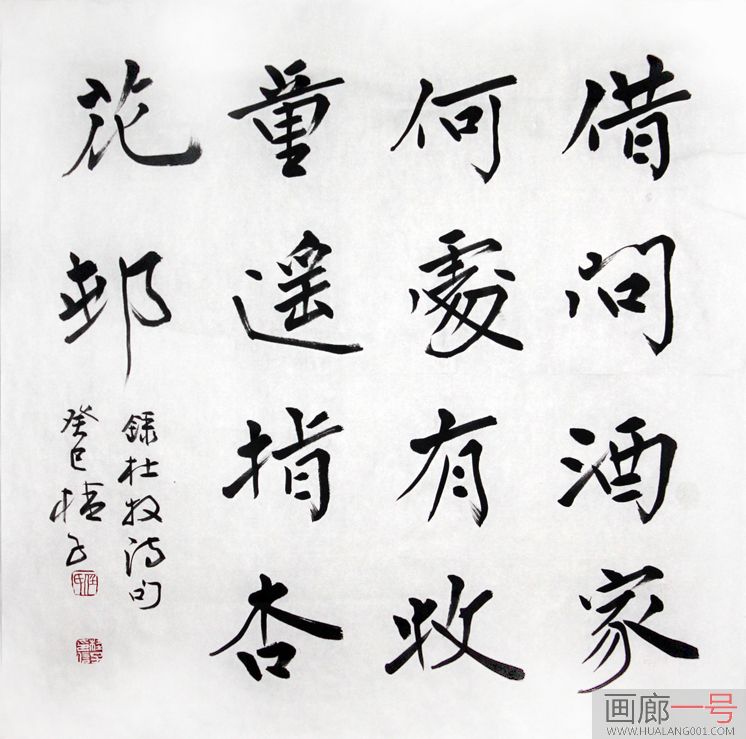 借问酒家
何處有牧
童遥指杏
花邨
錄杜牧诗句
癸巳
画廊一号
WWW.HUALANG001.COM